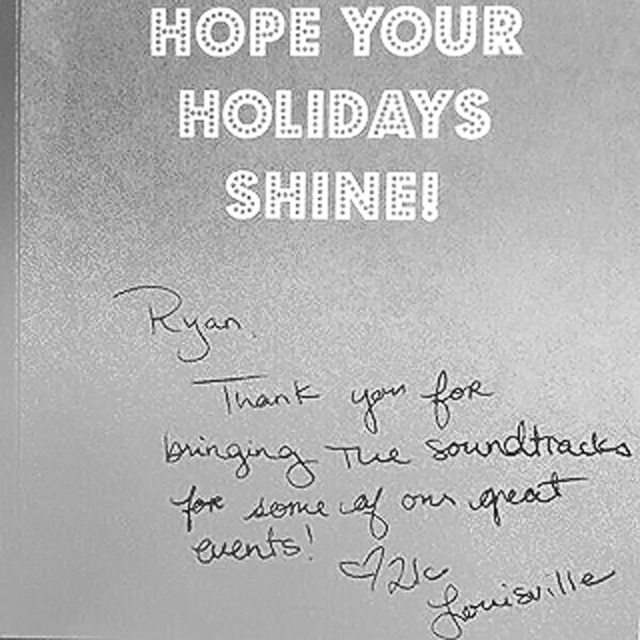 HOPE YOUR
HOLIDAYS
SHINE!
Ryan.
Thank you for
bringing the soundtracks
for some of our great
events!
♡ 21c
Louisville